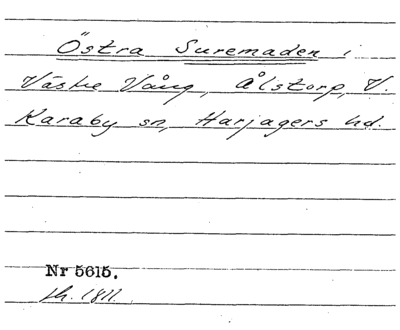 Östra Suremaden i
Västre Vång, Ålstorp, V.
Karaby sn, Harjagers hd.
Nr 5615.
sk. 1811.